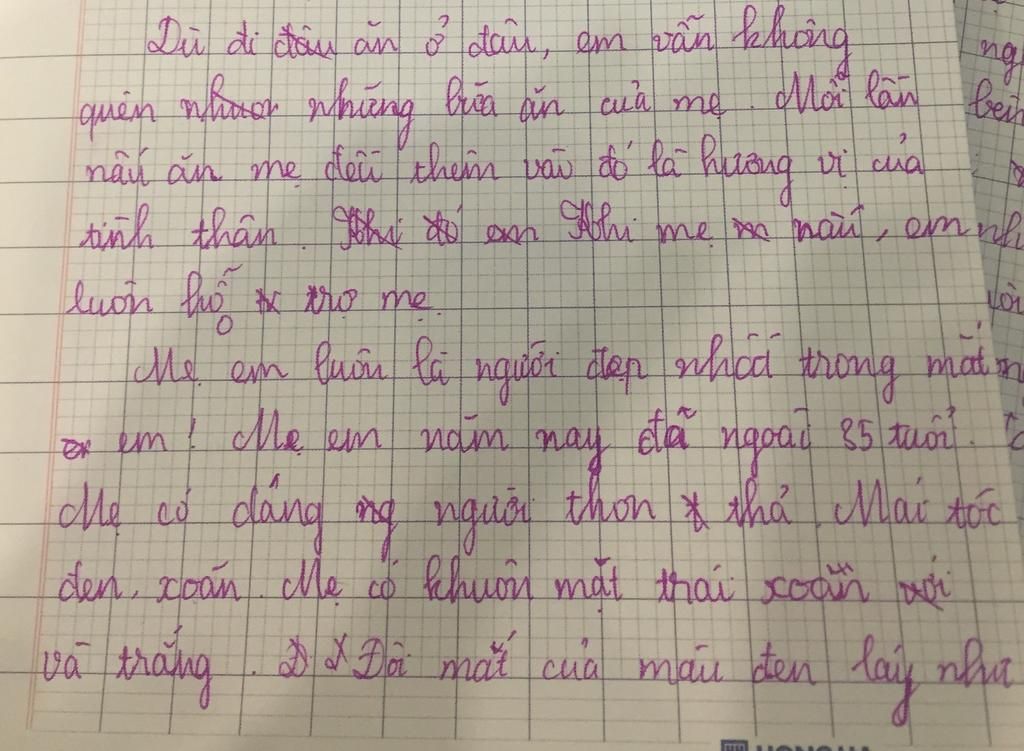 Dù đi đâu ăn ở đâu, em vẫn không
quên những bữa ăn của mẹ. Mỗi lần
nấu ăn mẹ đều thêm vào đó là hương vị của
tình thân. Khi mẹ nấu, em
luôn hỗ trợ mẹ.
Mẹ em luôn là người đẹp nhất trong mắt
em! Mẹ em năm nay đã ngoài 35 tuổi.
Mẹ có dáng người thon thả. Mái tóc
đen, xoăn. Mẹ có khuôn mặt trái xoăn
và trắng. Đôi mắt của màu đen láy như